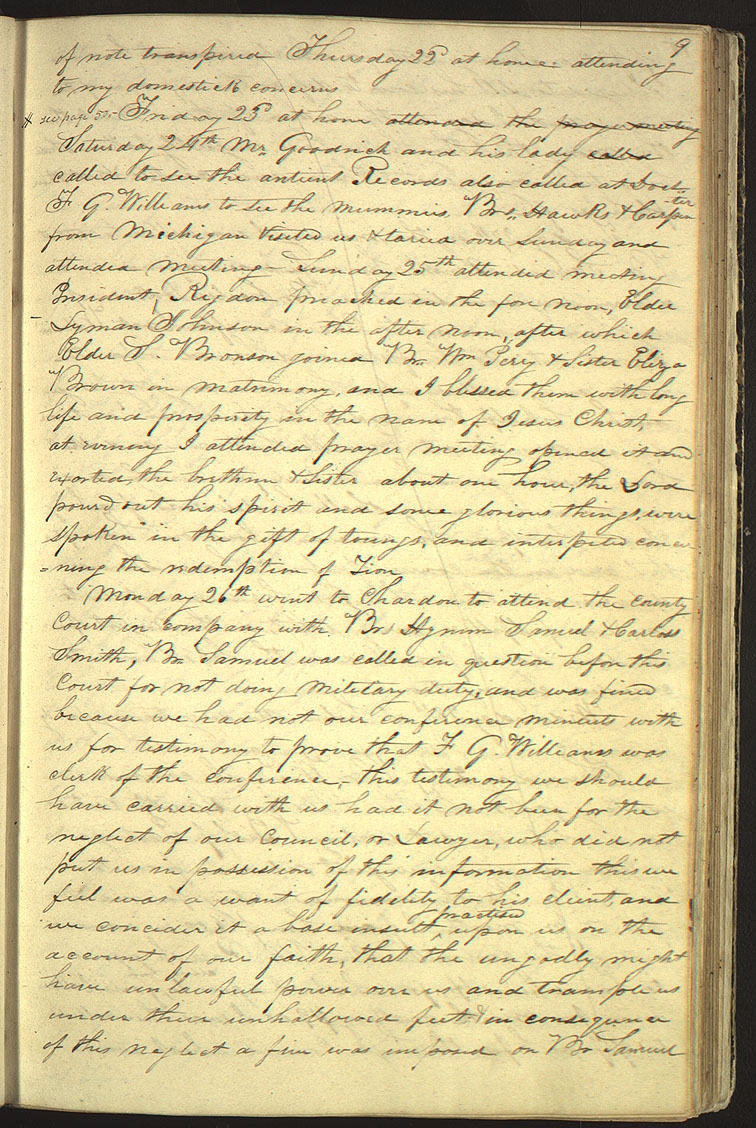 9
of note transpired Thursday 22d at home attending
to my domestick concerns
* see page 50- Friday 23d at home attended the prayer meeting
Saturday 24th Mr. Goodrich and his lady called
called to see the antient Records also called at Doct-
-ter
F G. Williams to see the mummies, Brs. Hawks & Carpen-
from Michigan visited us & taried over Sunday and
attended meeting- Sunday 25th attended meeting
President, Rigdon preached in the fore noon, Elder
Lyman Johnson in the after noon, after which
Elder S. Bronson joined Br. Wm Perry & Sister Eliza
Brown in matrimony, and I blessed them with long
life and prosperity in the name of Jesus Christ,
at evening I attended prayer meeting opened it and
exorted, the brethren & Sister about one hour, the Lord
pourd out his spirit and some glorious things, were
spoken in the gift of toungs, and interpeted concer
=ning the redemption of Zion
Monday 26th went to Chardon to attend the county
Court in company with. Brs Hyrum Samuel & Carloss
Smith, Br. Samuel was called in question before this
Court for not doing military duty, and was fined
because we had not our conference minuets with
us for testimony to prove that F G. Williams was
clerk of the conference,- this testimony we should
have carried with us had it not been for the
neglect of our Council, or Lawyer, who did not
put us in possession of this information this we
feel was a want of fidelity to his client, and
practised
we concider it a base insult upon us on the
account of our faith, that the ungodly might
have unlawful power over us and trample us
under their unhallowed feet. & in consequence
of this neglect a fine was imposed on Br. Samuel